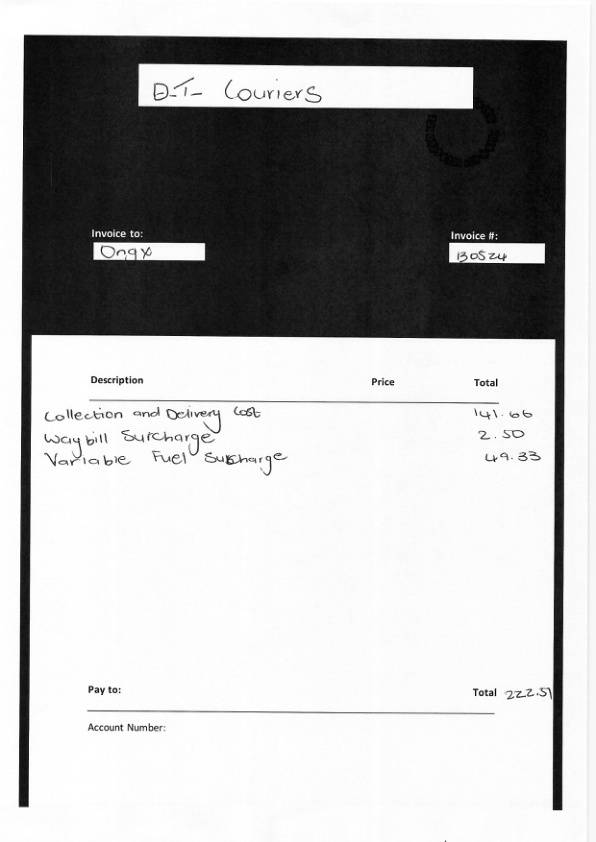 D-T- Couriers
Invoice to:
Invoice #:
Onyx
B0524
Description Price Total
Collection and Delivery Cost 141.66
Waybill Surcharge 2.50
Variable Fuel Surcharge 49.33
Pay to:
Total 222.51
Account Number: